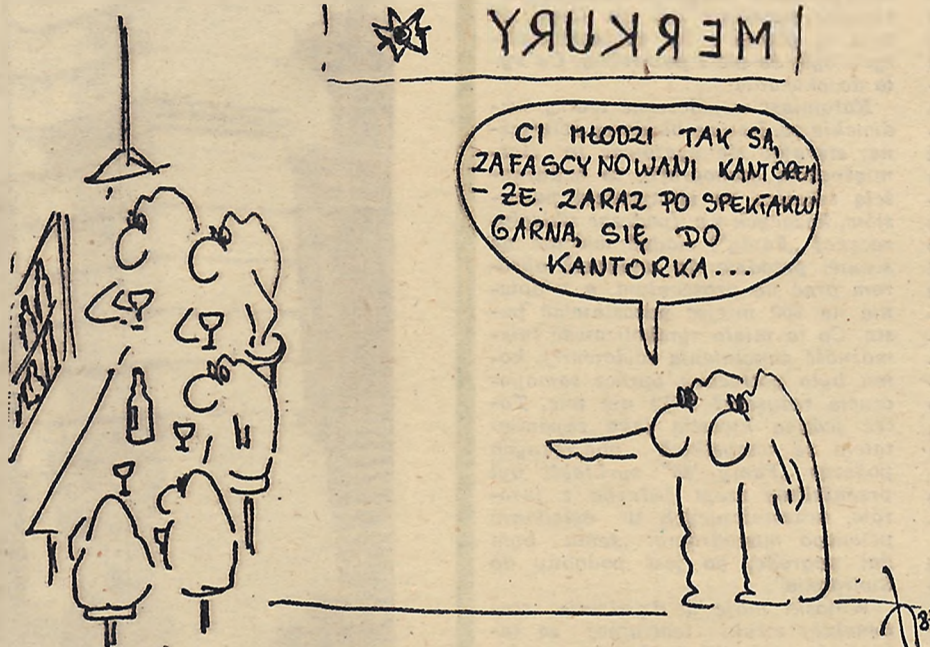 MERKURY
CI MŁODZI TAK SĄ
ZAFASCYNOWANI KANTOREM
- ŻE ZARAZ PO SPEKTAKLU
GARNĄ SIĘ DO
KANTORKA...